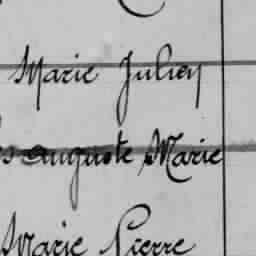 Marie Julien
auguste Marie
Marie Pierre